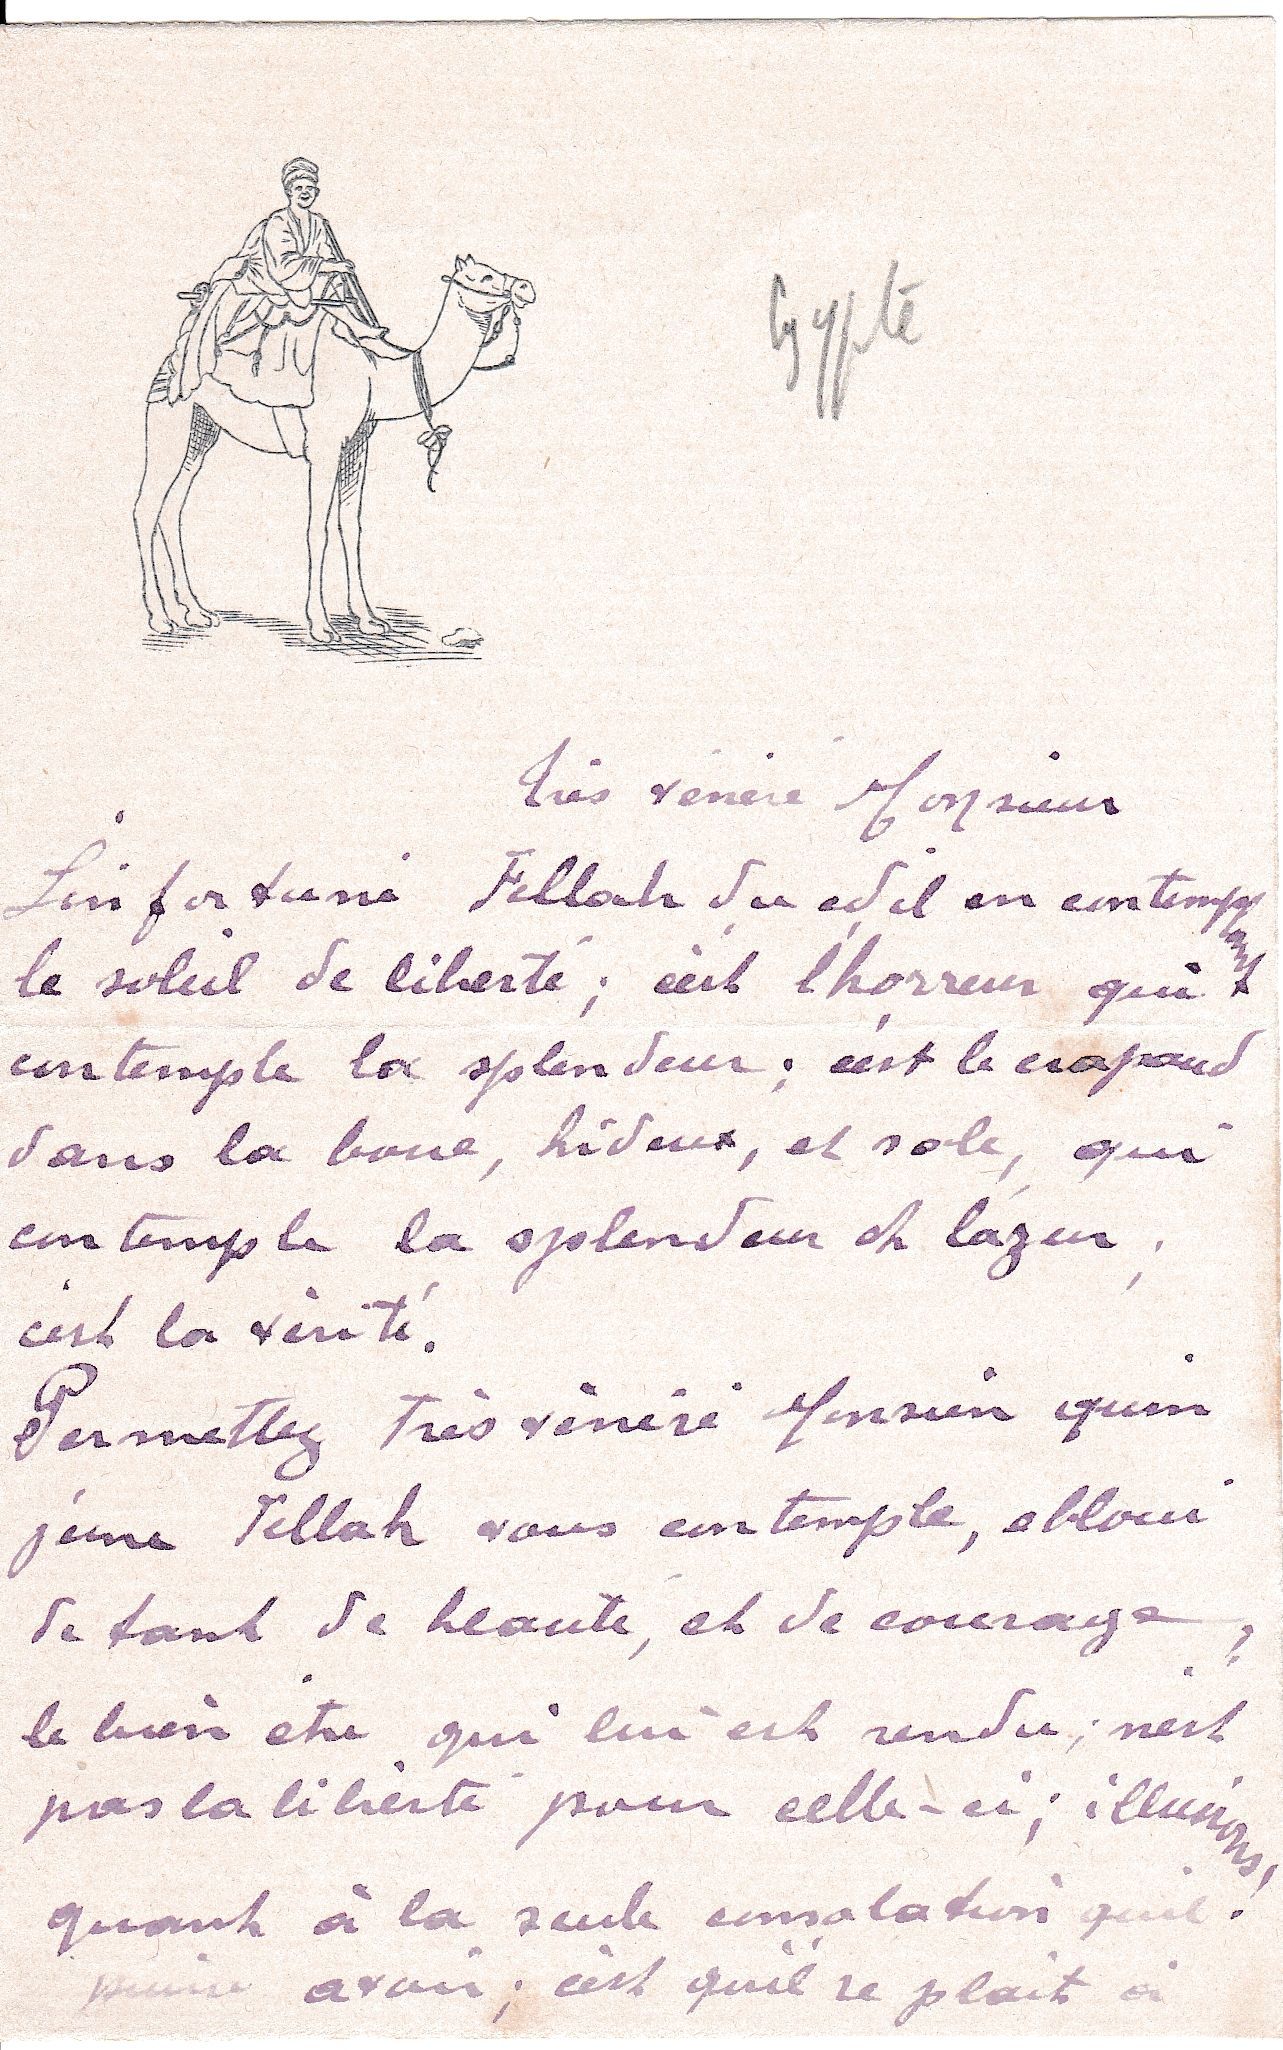 Egypte
Très vénéré Monsieur
L'infortuné Fellah du en contempant
le soleil de liberté; c'est l'horreur qui
contemple la splendeur; c'est le crapaud
dans la boue, hideux, et sale, qui
contemple la splendeur de l'azur;
c'est la vérité.
Permettez très vénéré Monsieur qu'un
jeune Fellah vous contemple, ebloui
de tant de beauté, et de courage,
le bien être qui lui est rendu; n'est
pas la liberté pour celle-ci; illusions!
quant à la seule consolation qu'il
puisse avoir; c'est qu'il se plait à